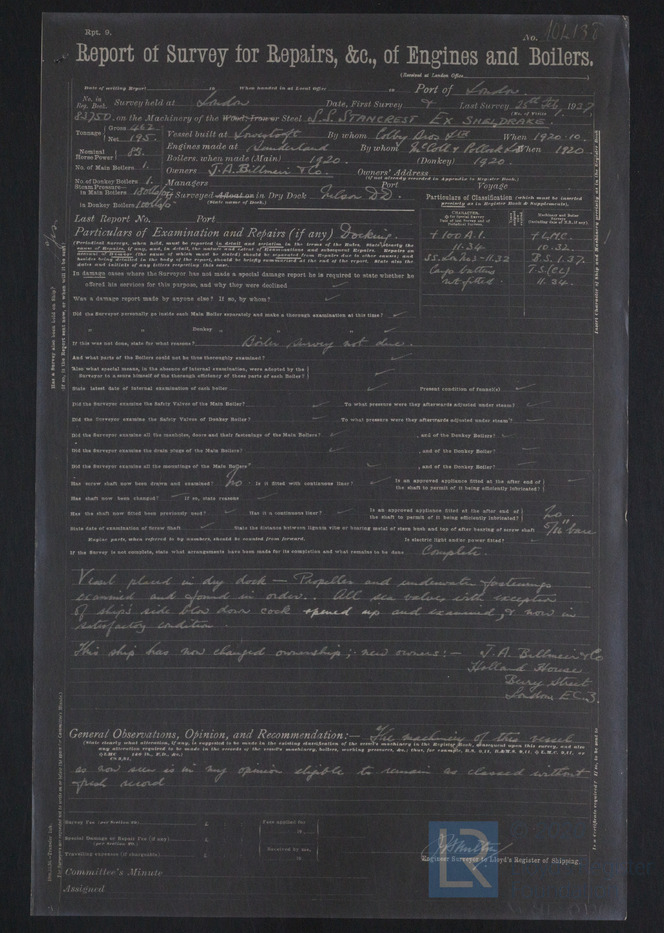 Rpt. 9.
No. 104138
Report of Survey for Repairs, &c., of Engines and Boilers.
(Received at London Office
Date of writing Report 19 When handed in at Local Office 19 Port of London
No. in Reg. Book. Survey held at London Date, First Survey & Last Survey 25th Feb 1937
(No. of Visits 1)
83750 on the Machinery of the Wood, Iron or Steel S.S. STANCREST EX SHELDRAKE.
Tonnage Gross 462 Net 195 Vessel built at Lowestoft By whom Colby Bros Ltd When 1920.10.
Nominal Horse Power 83. Engines made at Sunderland By whom McColl & Pollock Ltd When 1920.
No. of Main Boilers 1. Boilers, when made (Main) 1920. (Donkey) 1920.
Owners J.A. Billmeir & Co. Owners' Address
(if not already recorded in Appendix to Register Book.)
No. of Donkey Boilers 1. Managers Port Voyage
Steam Pressure— in Main Boilers If Surveyed Afloat or in Dry Dock
in Donkey Boilers (State name of Dock.)
Last Report No. Port
Particulars of Classification (which must be inserted precisely as in Register Book & Supplements).
+ 100 A.1. + L.M.C.
11.34. 10.32.
B.S. 1.37.
Cargo battens T.S.(CL)
not fitted 11.34.
Particulars of Examination and Repairs (if any) Docking.
In damage cases where the Surveyor has not made a special damage report he is required to state whether he
offered his services for this purpose, and why they were declined
Was a damage report made by anyone else? If so, by whom?
Did the Surveyor personally go inside each Main Boiler separately and make a thorough examination at this time?
" " Donkey " "
If this was not done, state for what reasons? Boiler Survey not due.
And what parts of the Boilers could not be thus thoroughly examined?
Also what special means, in the absence of internal examination, were adopted by the
Surveyor to assure himself of the thorough efficiency of those parts of each Boiler?
State latest date of internal examination of each boiler Present condition of funnel(s)
Did the Surveyor examine the Safety Valves of the Main Boiler? To what pressure were they afterwards adjusted under steam?
Did the Surveyor examine the Safety Valves of Donkey Boiler? To what pressure were they afterwards adjusted under steam?
Did the Surveyor examine all the manholes, doors and their fastenings of the Main Boilers? , and of the Donkey Boiler?
Did the Surveyor examine the drain plugs of the Main Boilers? , and of the Donkey Boiler?
Did the Surveyor examine all the mountings of the Main Boilers? , and of the Donkey Boiler?
Has screw shaft now been drawn and examined? No. Is it fitted with continuous liner? Is an approved appliance fitted at the after end of
the shaft to permit of it being efficiently lubricated?
Has shaft now been changed? If so, state reasons
Has the shaft now fitted been previously used? Has it a continuous liner? Is an approved appliance fitted at the after end of
the shaft to permit of it being efficiently lubricated? No
State date of examination of Screw Shaft State the distance between lignum vitæ or bearing metal of stern bush and top of after bearing of screw shaft 5/16" bare
Engine parts, when referred to by numbers, should be counted from forward. Is electric light and/or power fitted?
If the Survey is not complete, state what arrangements have been made for its completion and what remains to be done Complete.
Vessel placed in dry dock — Propeller and underwater fastenings
examined and found in order. All sea valves with exception
of ship's side blow down cock opened up and examined, & now in
satisfactory condition.
This ship has now changed ownership; new owners:— J.A. Billmeir & Co
Holland House
Bury Street
London E.C.3.
General Observations, Opinion, and Recommendation:— The machinery of this vessel
as now seen is in my opinion eligible to remain as classed without
fresh record
Survey Fee (per Section 29) £ Fees applied for
Special Damage or Repair Fee (if any) £ 19
(per Section 29.)
Travelling expenses (if chargeable) £ Received by me, 19
Engineer Surveyor to Lloyd's Register of Shipping.
Committee's Minute
Assigned
LR